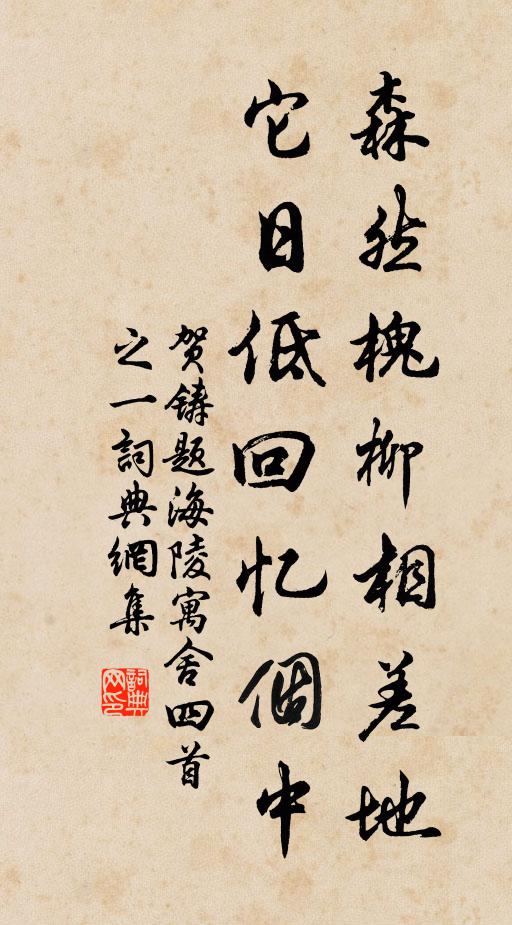 森然槐柳相差地
它日低回忆個中
贺鑄题海陵寓舍四首
之一詞典網集
詞典网印